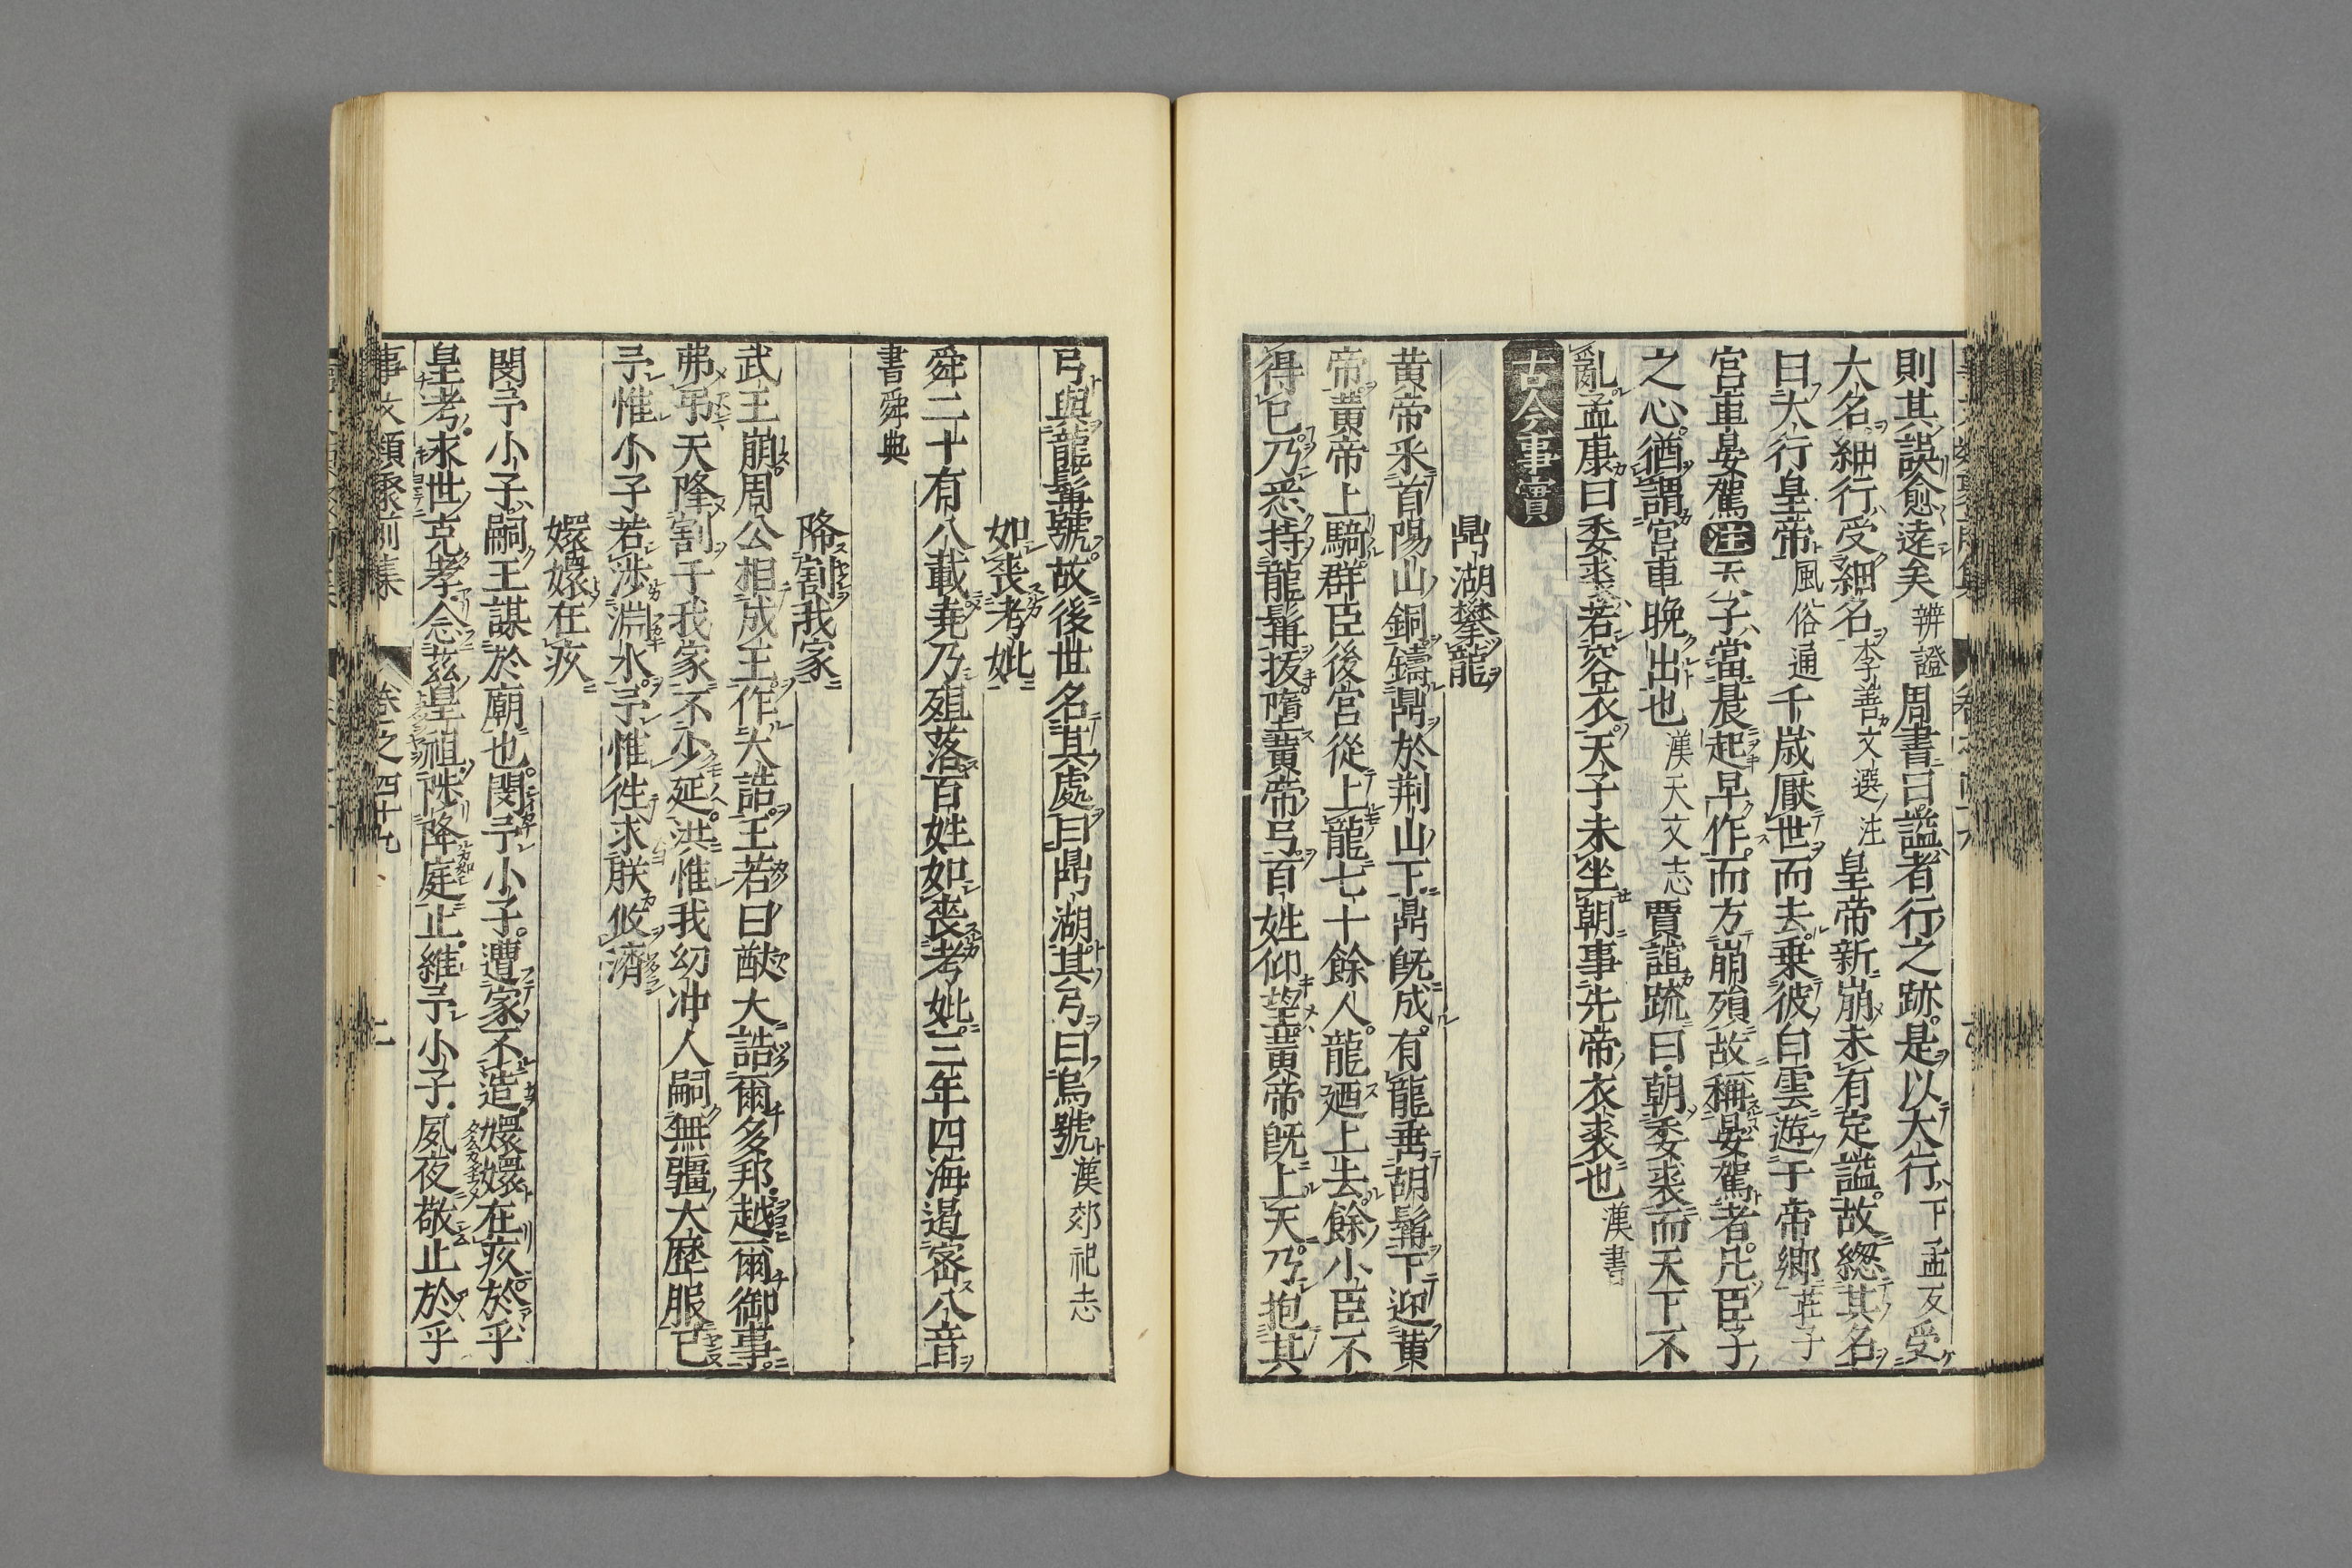 則其誤愈逺矣辨證周書曰謚者行之跡是以大行下孟反受
大名細行受細名李善文選注皇帝新崩未有定謚故緫其名
曰大行皇帝風俗通千歳厭世而去乗彼白雲遊于帝鄉莊子
宮車晏駕注天子當晨起早作而方崩殞故稱晏駕者凡臣子
之心猶謂宮車晩出也漢天文志賈誼疏曰朝委裘而天下不
亂孟康曰委裘若容衣天子未坐朝事先帝衣裘也漢書
古今事實
鼎湖攀龍
黄帝釆首陽山銅鑄鼎於荆山下鼎旣成有龍垂胡髯下迎黄
帝黄帝上騎群臣後宮從上龍七十餘人龍廼上去餘小臣不
得已乃悉持龍髯拔墮黄帝弓百姓仰望黄帝旣上天乃抱其
弓與龍髯號故後世名其處曰鼎湖其弓曰烏號漢郊祀志
如喪考妣
舜二十有八載堯乃殂落百姓如喪考妣三年四海遏密八音
書舜典
降割我家
武王崩周公相成王作大誥王若曰猷大誥爾多邦越爾御事
弗弔天降割于我家不少延洪惟我幼冲人嗣無疆大歴服已
予惟小子若渉淵水予惟徃求朕攸濟
嬛嬛在疚
閔予小子嗣王謀於廟也閔予小子遭家不造嬛嬛在疚於乎
皇考永世克孝念茲皇祖陟降庭止維予小子夙夜敬止於乎
事文類聚前集 卷之四十九 二